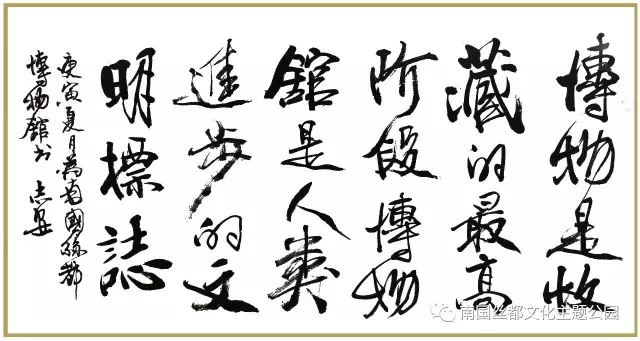 博物是收
藏的最高
阶段博物
館是人类
進步的文
明標誌
庚寅夏月為南國絲都
博物館书
南国丝都文化主题公园